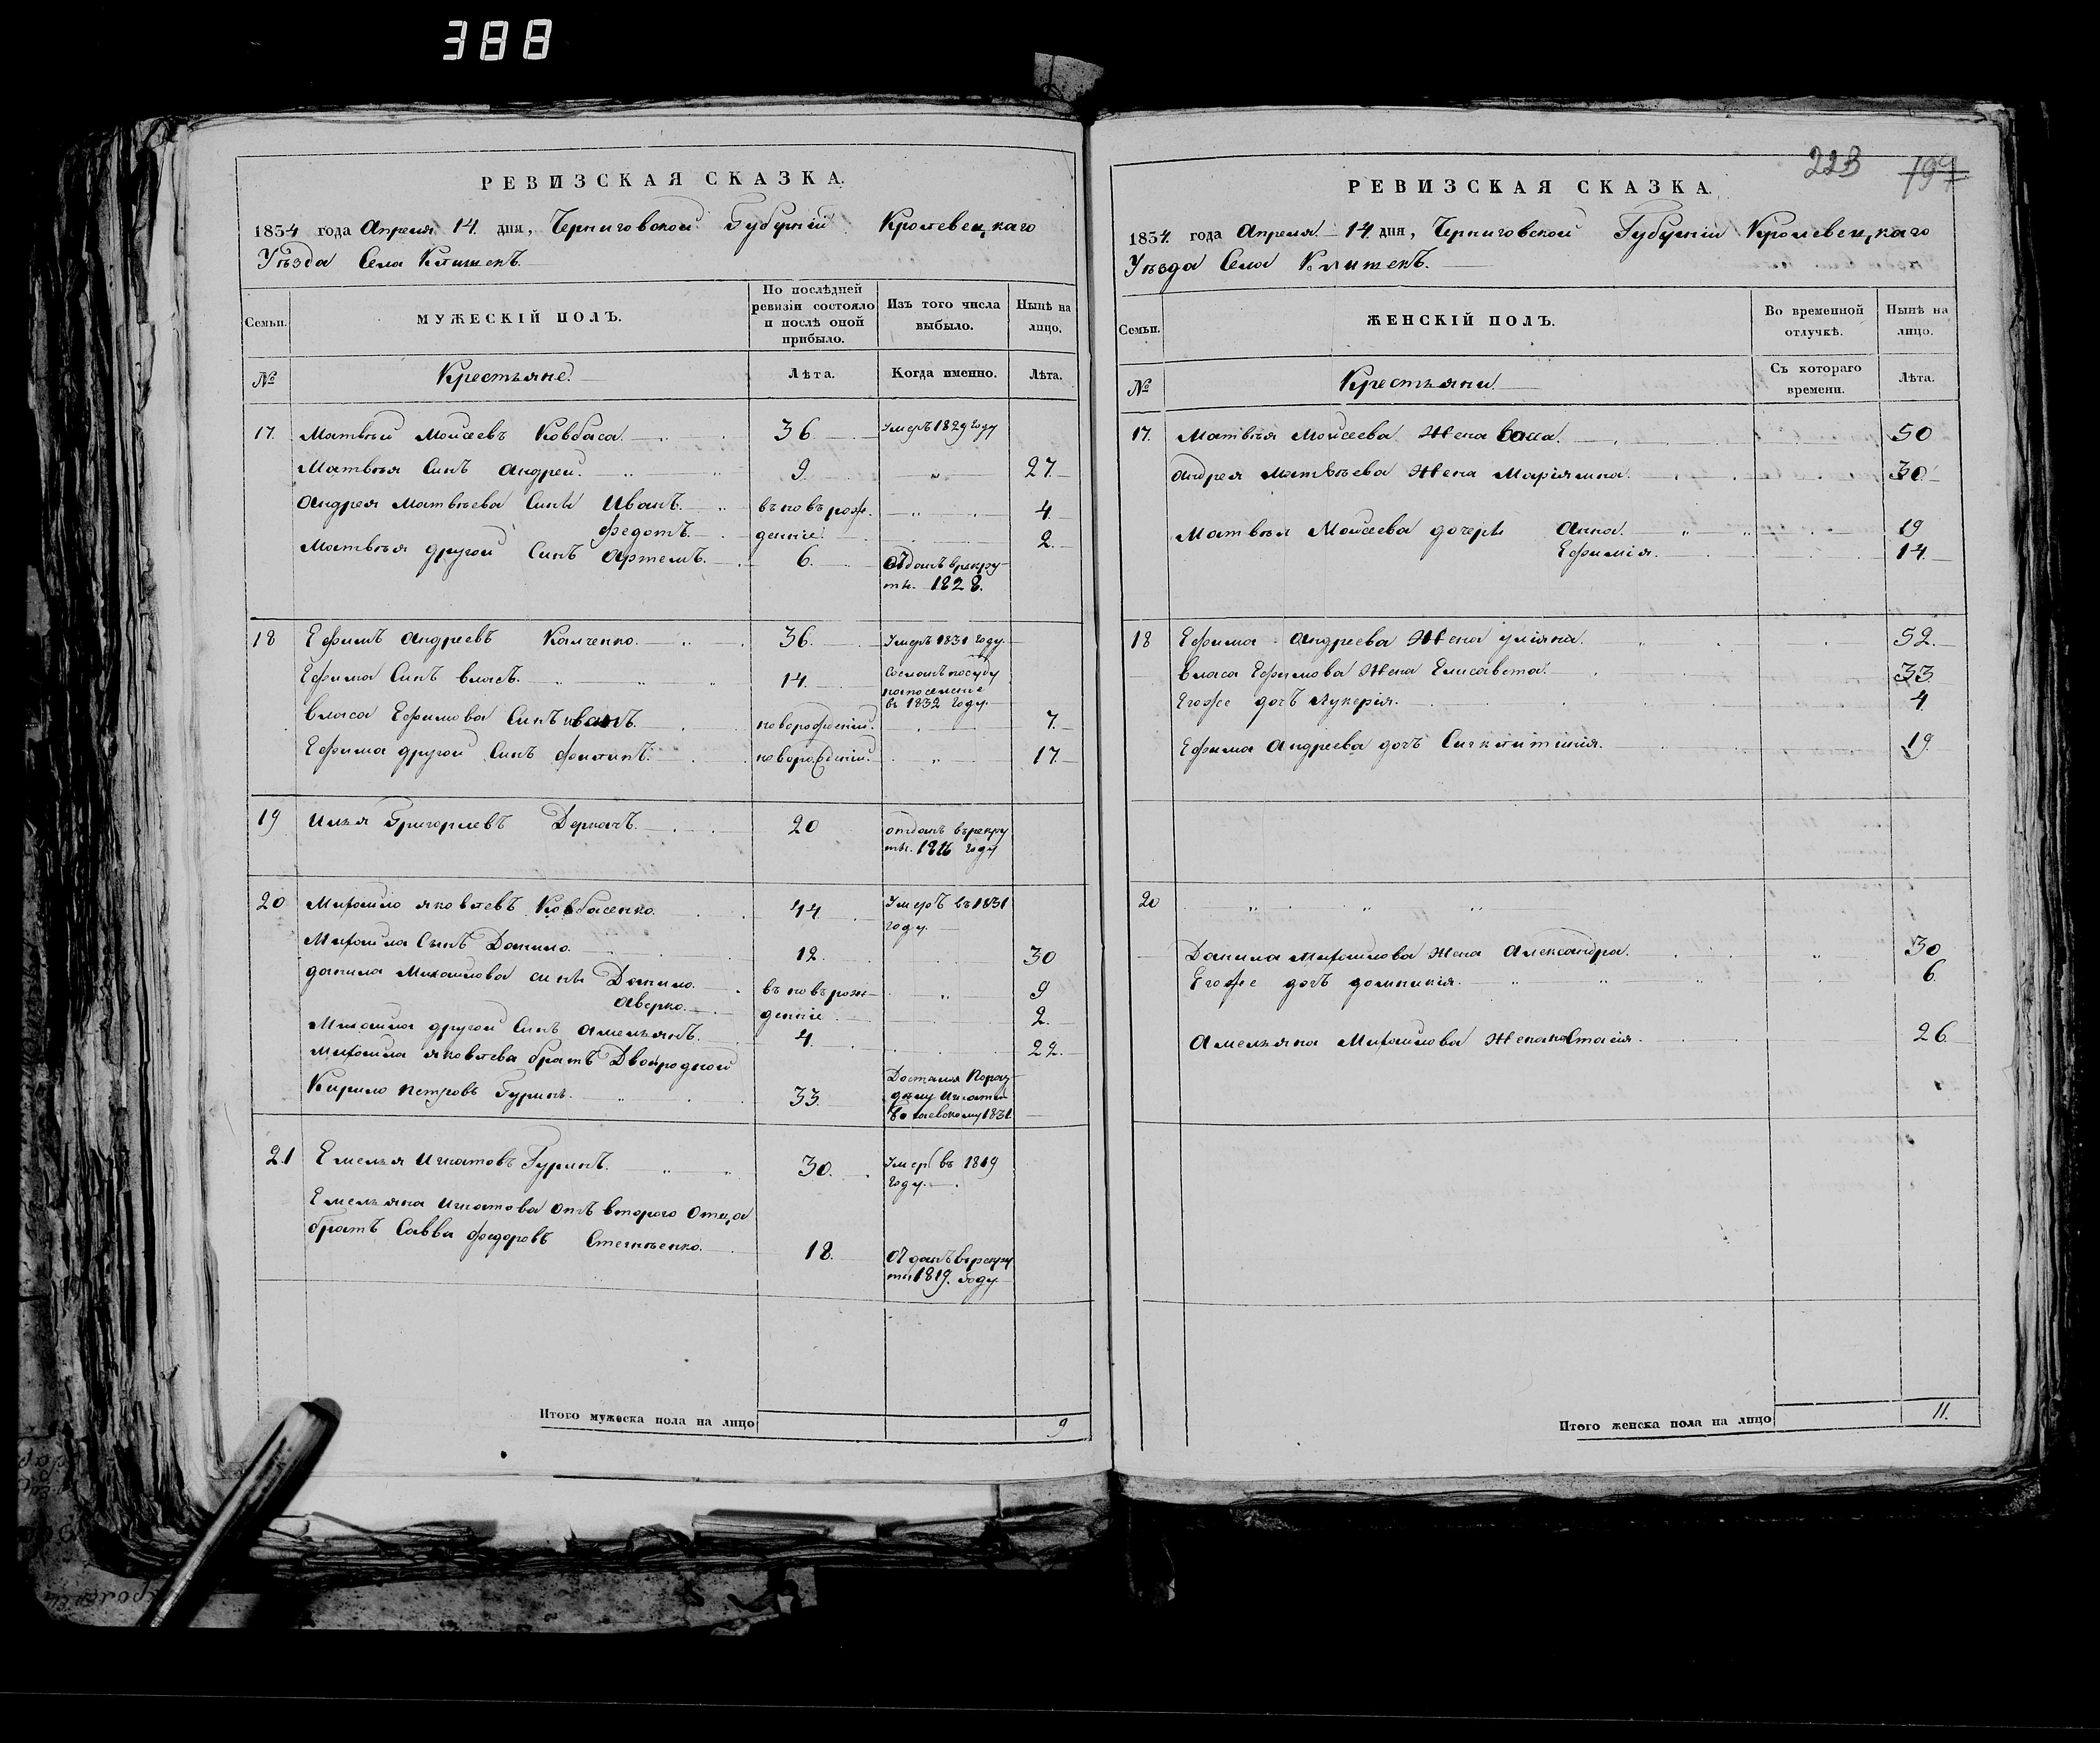 388
РЕВИЗСКАЯ СКАЗКА.
1834 года Апреля 14. дня, Черниговской Губерніи Кролевецкаго
Уѣзда Села Клишекъ.
Семьи.
МУЖЕСКІЙ ПОЛЪ.
По послѣдней ревизіи состояло и послѣ оной прибыло.
Изъ того числа выбыло.
Нынѣ на лицо.
№
Крестьяне.
Лѣта.
Когда именно.
Лѣта.
17. Матвѣй Моисеевъ Ковбаса. 36 Умеръ 1829 году
Матвѣя Синъ Андрей. 9. " 27.
Андрея Матвѣева Сини Иванъ. въновърож- 4.
Федотъ. деніе. 2.
Матвѣя другой Синъ Артемъ. 6. Отданъ врекру-
ты. 1828.
18 Ефимъ Андреевъ Калченко. 36. Умеръ 1831 году.
Ефима Синъ власъ. 14. Сосланъ посуду
напоселеніе
въ 1832 году.
власа Ефимова Синъ иванъ новорожденій. 7.
Ефима другой Синъ новорожденій. " 17.
19 Илья Григориевъ Деркачъ. 20 отданъ върекру
ты. 1816 году
20 Михайло яковлевъ Ковбасенко. 44. Умеръ въ 1831
году.
Михайла Сынъ Данило. 12. 30
данила Михайлова сины Данило. въновърож- " 9
Аверко. деніе 2.
Михайла другой Синъ Амельянъ. 4. 22.
Михайла яковлева братъ Двоюродной
Кирило петровъ Гуринъ. 33. Достался
1831.
21 Емелья Игнатовъ Гуринъ. 30. Умеръ въ 1819
году.
Емельяна Игнатова отъ второго Отца
братъ Савва федоровъ 18. Отданъ върекру
ты 1819. году
Итого мужеска пола на лицо 9
223 197
РЕВИЗСКАЯ СКАЗКА.
1834. года Апреля 14. дня, Черниговской Губерніи Кролевецкаго
Уѣзда Села Клишекъ.
Семьи.
ЖЕНСКІЙ ПОЛЪ.
Во временной отлучкѣ.
Нынѣ на лицо.
№
Крестьяни
Съ котораго времени.
Лѣта.
17. Матвѣя Моисеева Жена 50
Андрея Матвѣева Жена Маріямна. 30
Матвѣя Моисеева дочери Анна. 19
Ефимія. 14.
18 Ефима Андреева Жена уліяна. 52.
власа Ефимова Жена Елисавета. 33
Егоже дочъ Лукерія. 4.
Ефима Андреева дочъ 19.
20 " " "
Данила Михайлова Жена Александра. " 30
Егоже дочъ домникія. 6.
Амельяна Михайлова Жена настасія. 26
Итого женска пола на лицо 11.